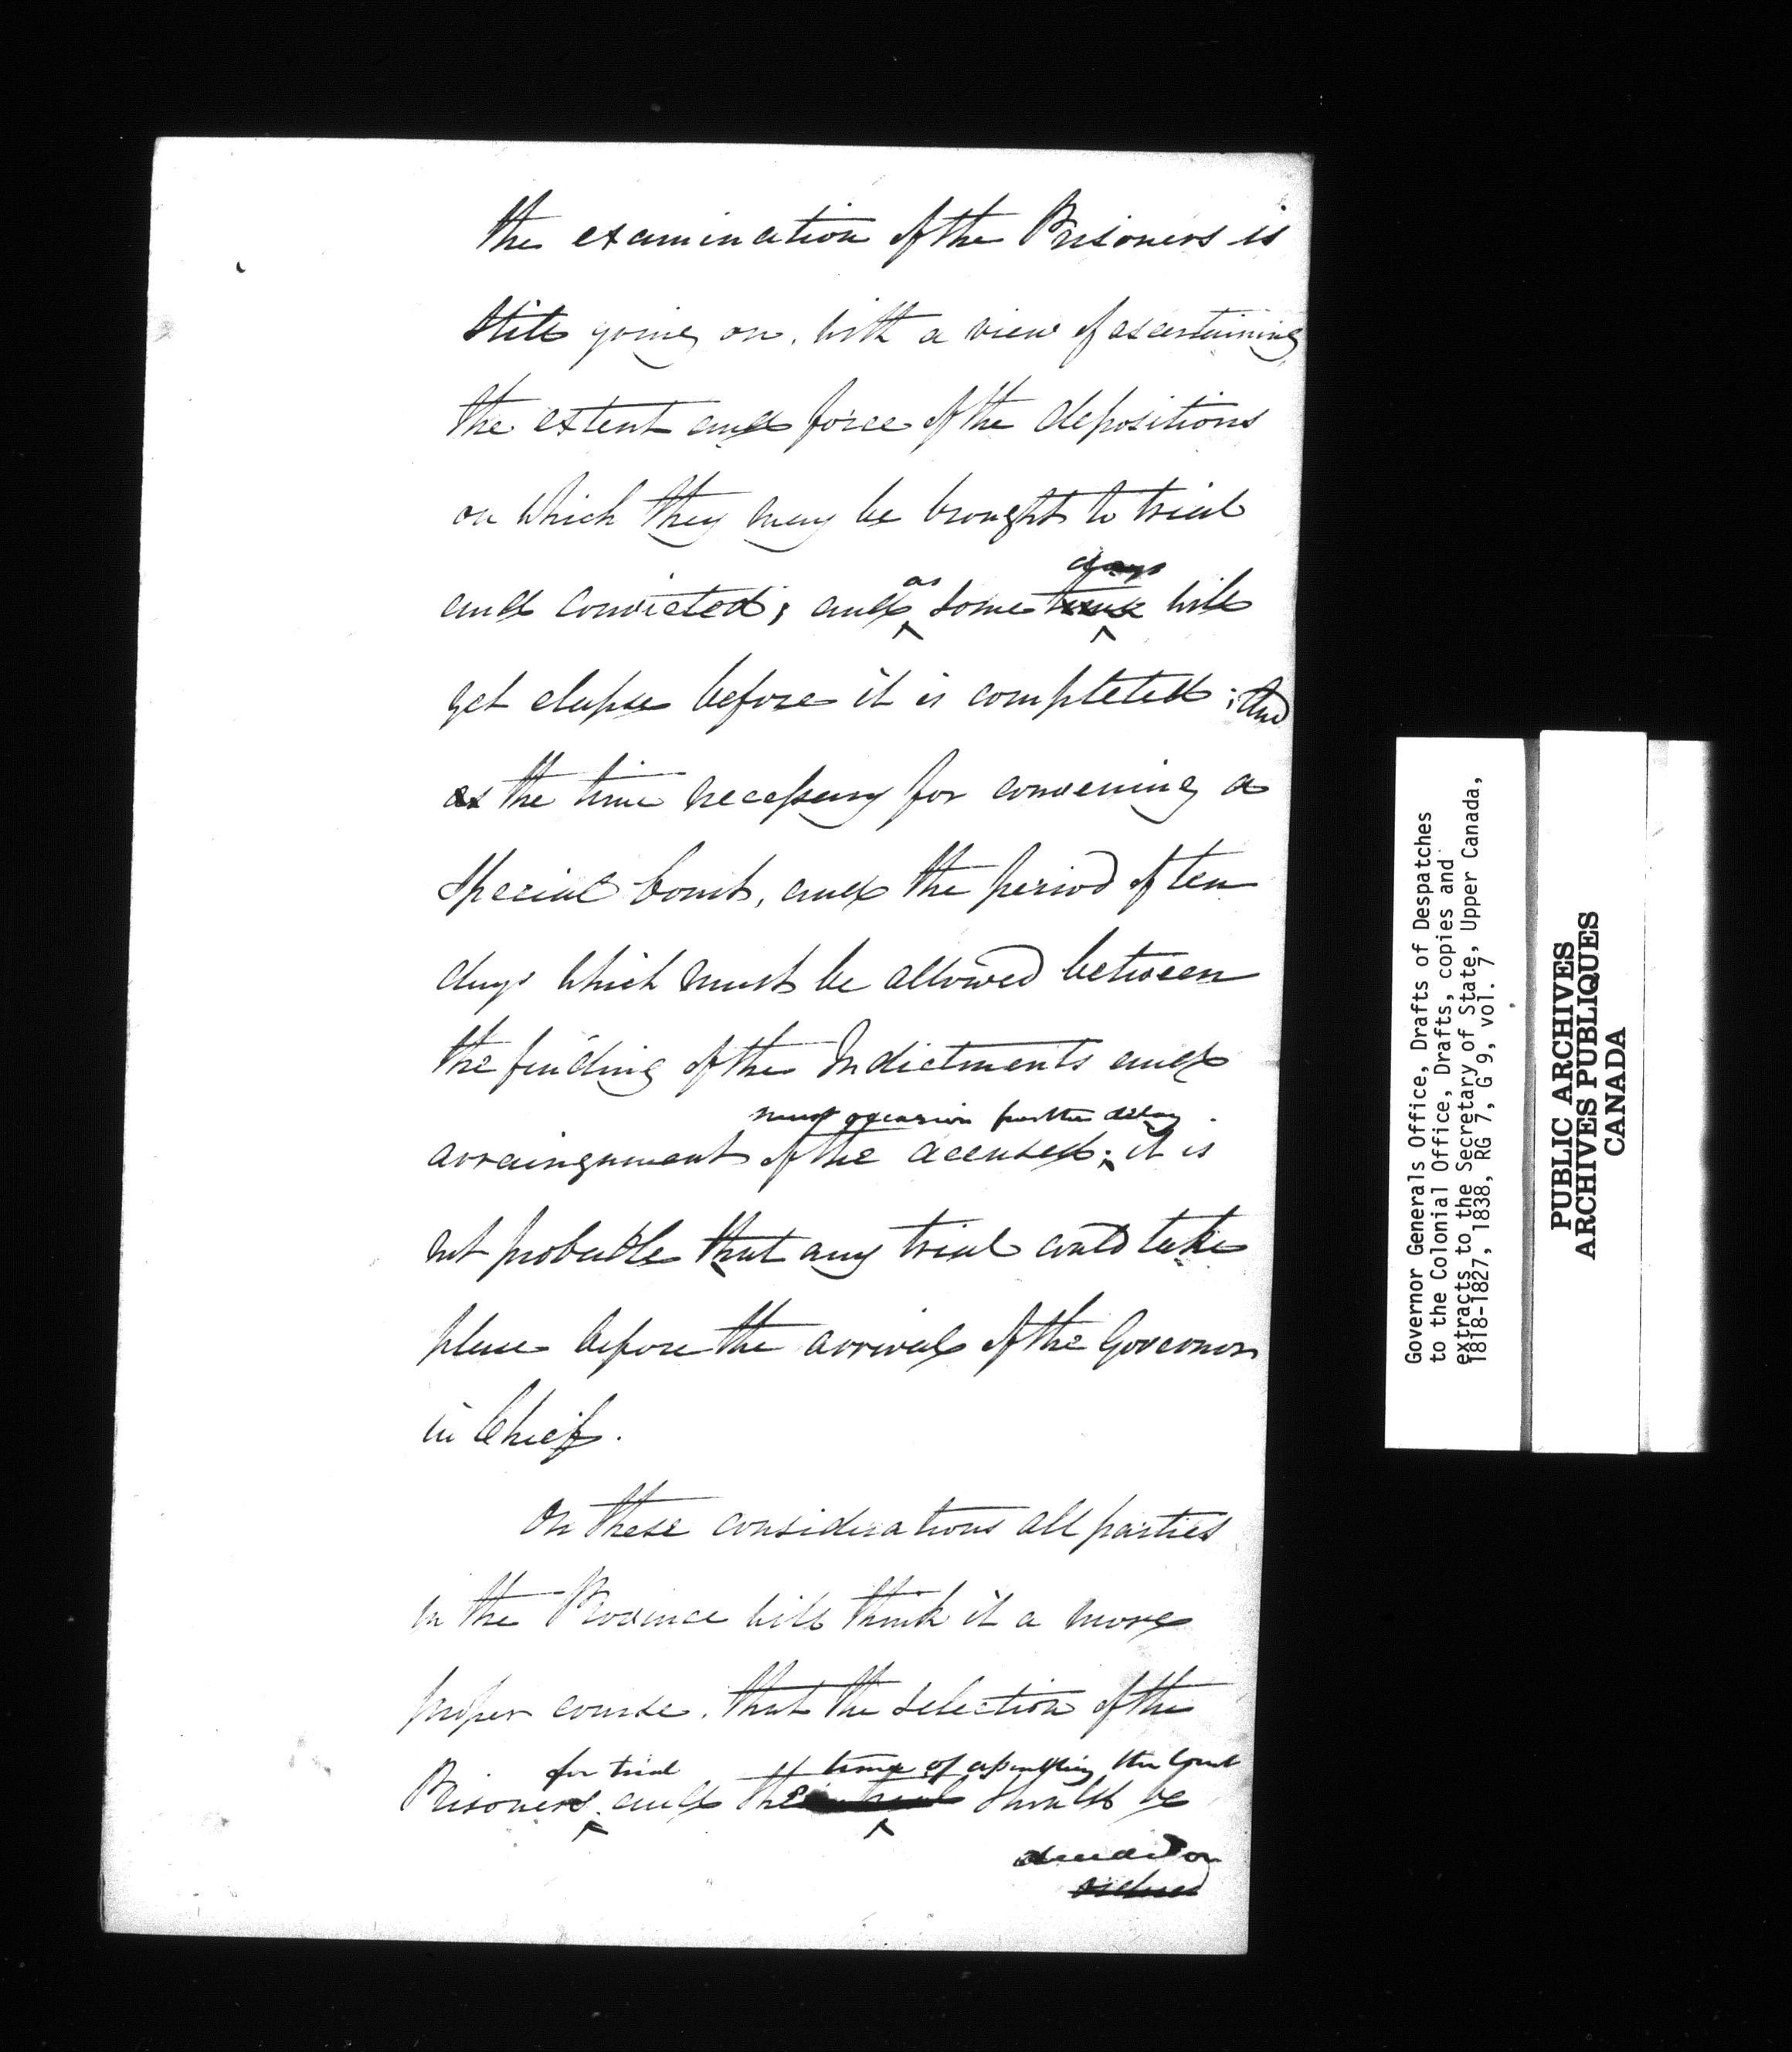 the examination of the Prisoners is
still going on, with a view of ascertaining
the extent and force of the depositions
on which they may be brought to trial
days
as
and convicted; and some time will
yet elapse before it is completed; and
as the time necessary for convening a
Special Court, and the period of ten
days which must be allowed between
the finding of the Indictments and
must occasion further delay
arraingnment of the accused; it is
not probable that any trial could take
place before the arrival of the Governor
in Chief.
On these considerations all parties
in the Province will think it a more
proper course, that the selection of the
for trial time of assembling the Court
Prisoners and the should be
Governor Generals Office, Drafts of Despatches
to the Colonial Office, Drafts, copies and
extracts to the Secretary of State, Upper Canada,
1818-1827, 1838, RG 7, G 9, vol. 7
PUBLIC ARCHIVES
ARCHIVES PUBLIQUES
CANADA